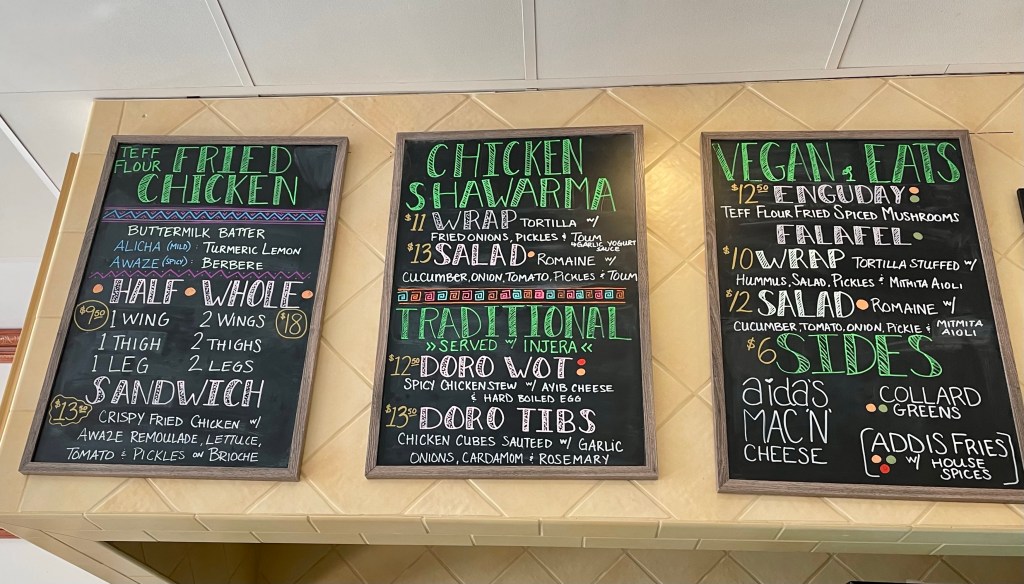 TEFF FLOUR FRIED
CHICKEN
BUTTERMILK BATTER
ALICHA (MILD): TURMERIC LEMON
AWAZE (SPICY): BERBERE
HALF • WHOLE
$9.50 1 WING 2 WINGS $18
1 THIGH 2 THIGHS
1 LEG 2 LEGS
SANDWICH
$13.50 CRISPY FRIED CHICKEN W/
AWAZE REMOULADE, LETTUCE,
TOMATO & PICKLES ON BRIOCHE
CHICKEN
SHAWARMA
$11 WRAP TORTILLA W/
FRIED ONIONS, PICKLES & TOUM
GARLIC YOGURT
SAUCE
$13 SALAD • ROMAINE W/
CUCUMBER, ONION, TOMATO, PICKLES & TOUM
TRADITIONAL
»SERVED W/ INJERA«
$12.50 DORO WOT
SPICY CHICKEN STEW W/ AYIB CHEESE
& HARD BOILED EGG
$13.50 DORO TIBS
CHICKEN CUBES SAUTEED W/ GARLIC
ONIONS, CARDAMOM & ROSEMARY
VEGAN & EATS
$12.50 ENGUDAY
TEFF FLOUR FRIED SPICED MUSHROOMS
FALAFEL
$10 WRAP TORTILLA STUFFED W/
HUMMUS, SALAD, PICKLES & MITMITA AIOLI
$12 SALAD • ROMAINE W/
CUCUMBER, TOMATO, ONION, PICKLE & MITMITA
AIOLI
$6 SIDES
aida's
MAC 'N'
CHEESE
COLLARD
GREENS
[ADDIS FRIES]
W/ HOUSE
SPICES